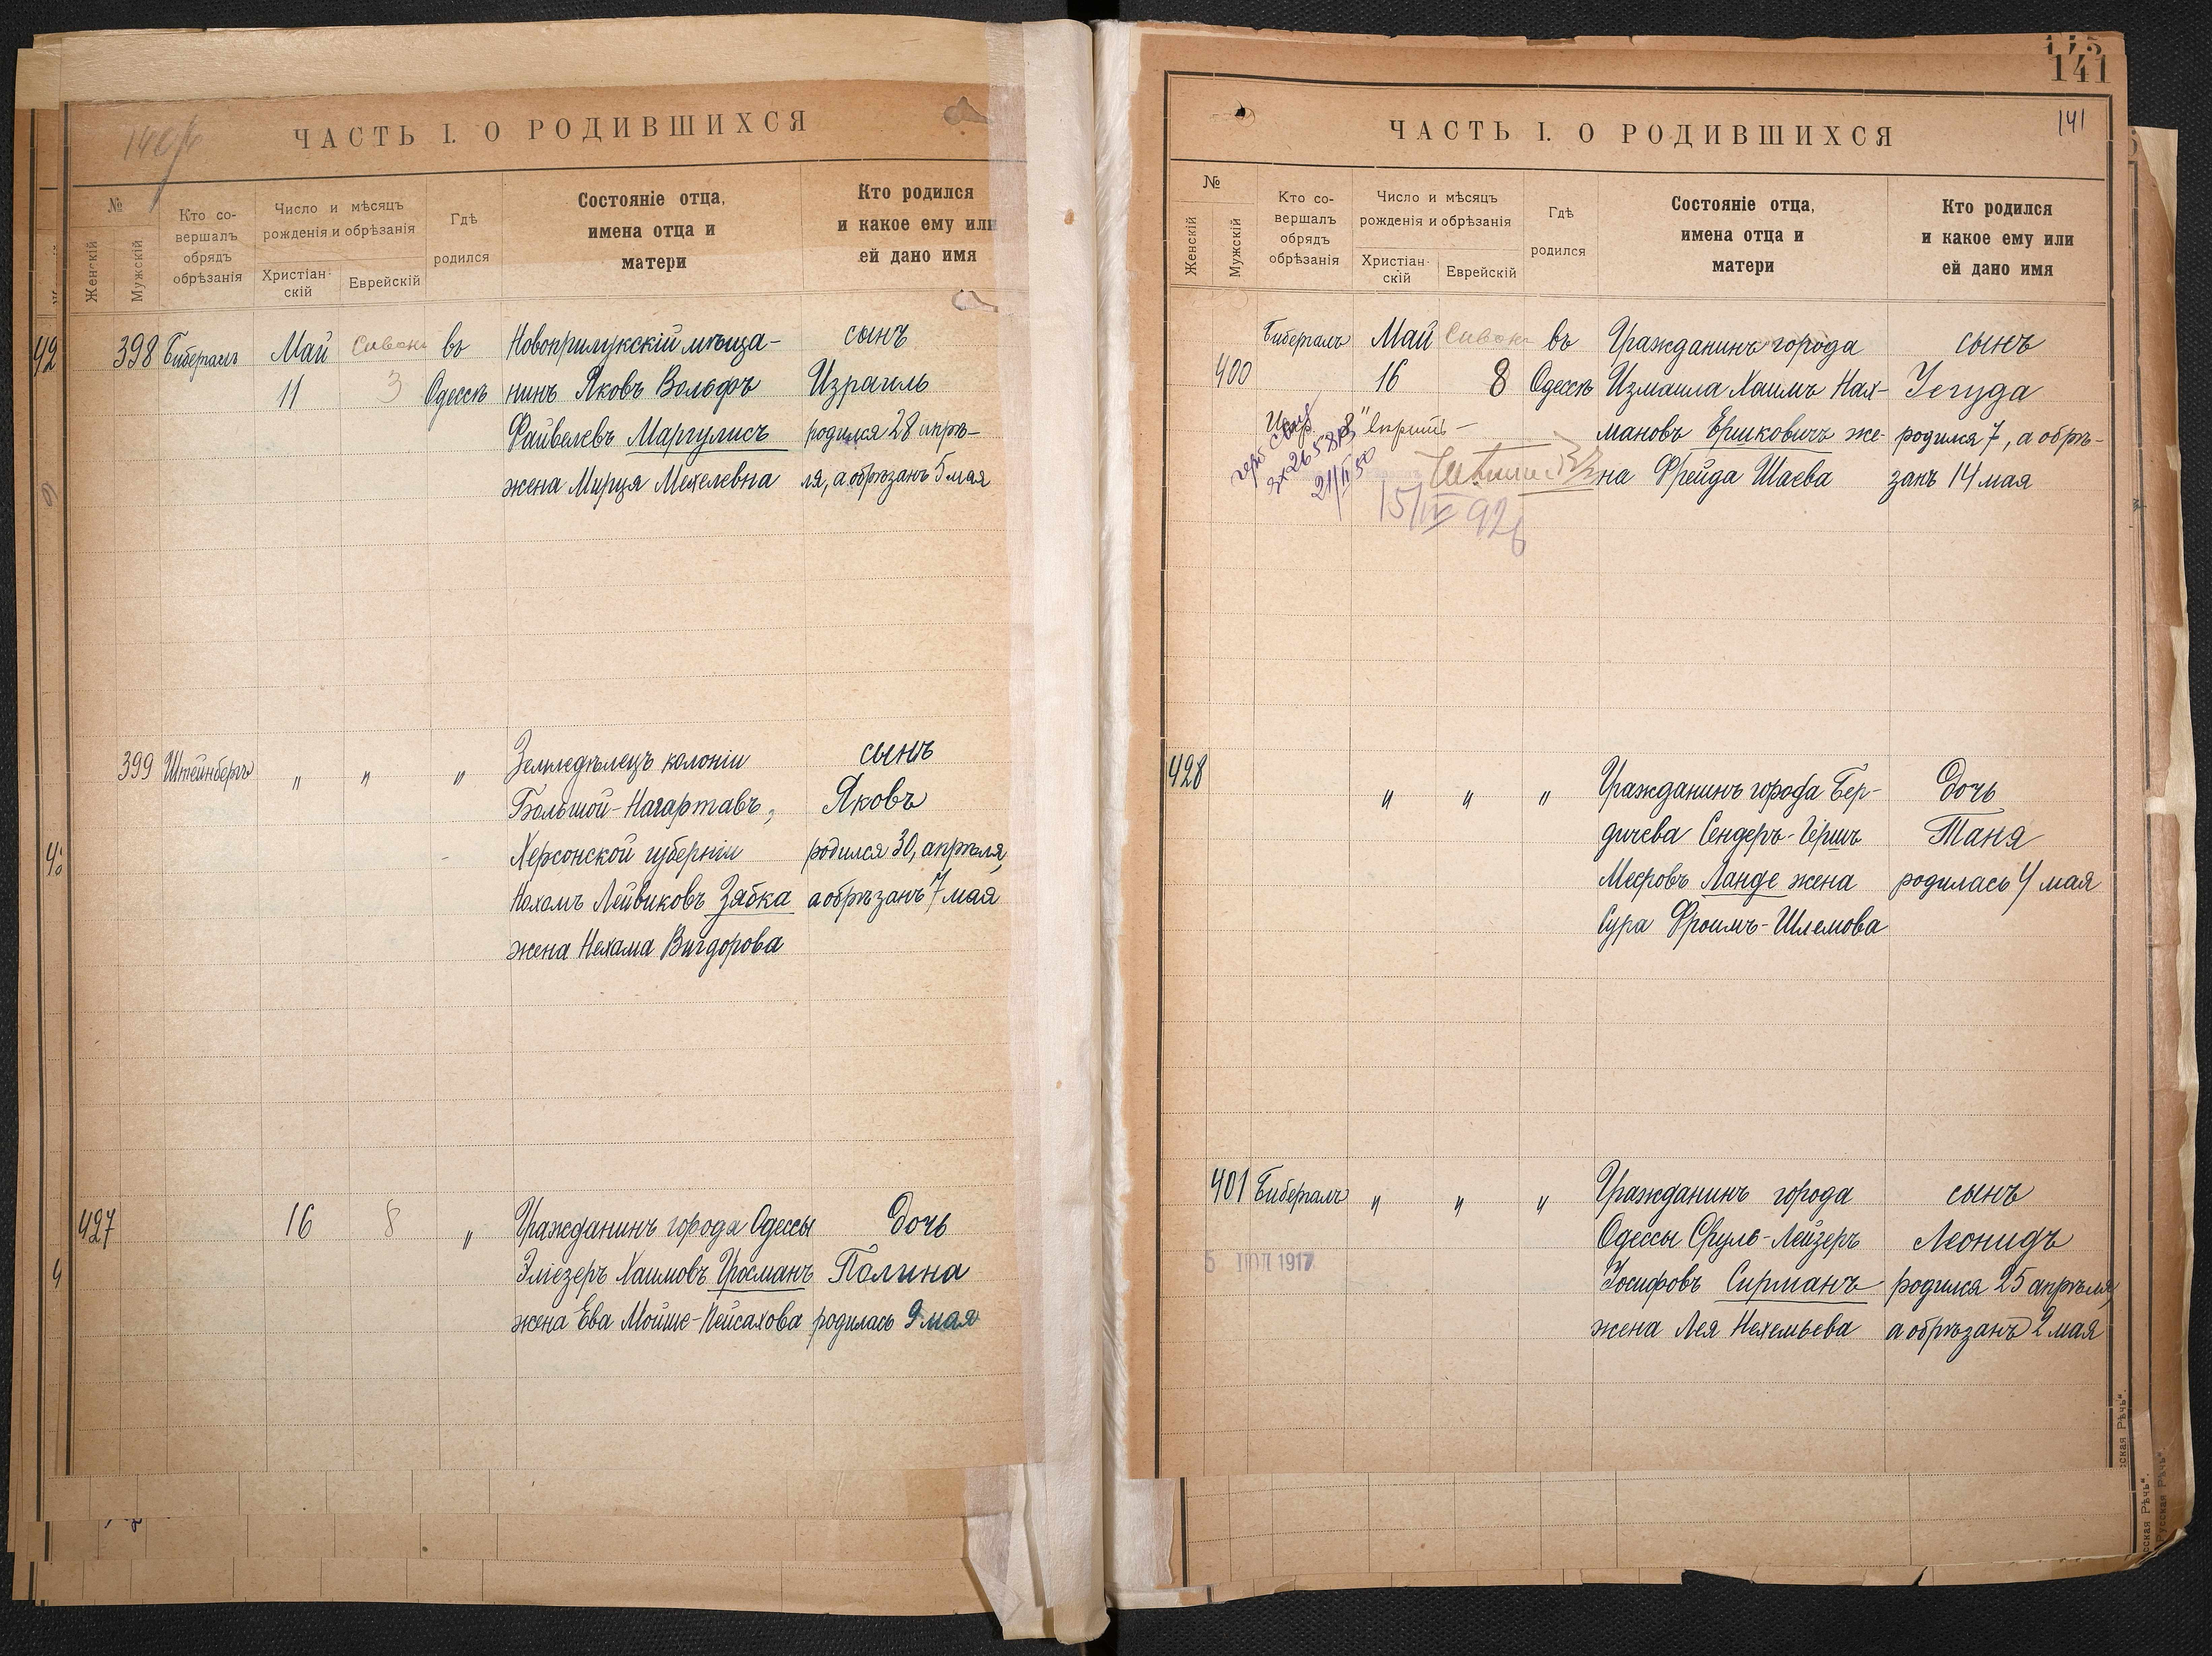 ЧАСТЬ I. О РОДИВШИХСЯ
№
Женскій
Мужскій
Кто со-
вершалъ
обрядъ
обрѣзанія
Число и мѣсяцъ
рожденія и обрѣзанія
Христіан-
скій
Еврейскій
Гдѣ
родился
Состояніе отца,
имена отца и
матери
Кто родился
и какое ему или
ей дано имя
398 Бибералъ Май Сивонъ въ Новоприлукскій мѣща- сынъ
11 3 Одессѣ нинъ Яковъ Вольфъ Израиль
Файвелевъ Маргулисъ родился 28 апрѣ-
жена Мирця Мехелевна ля, а обрѣзанъ 5 мая
399 Штейнбергъ " " " Земледѣлецъ колоніи сынъ
Большой-Нагартавъ, Яковъ
Херсонской губерніи родился 30, апрѣля,
Нохомъ Лейвиковъ Зябка а обрѣзанъ 7 мая
жена Нехама Вигдорова
427 16 8 " Гражданинъ города Одессы дочь
Эліезеръ Хаимовъ Гросманъ Полина
жена Ева Мойше-Пейсахова родилась 9 мая
141
141
ЧАСТЬ I. О РОДИВШИХСЯ
№
Женскій
Мужскій
Кто со-
вершалъ
обрядъ
обрѣзанія
Число и мѣсяцъ
рожденія и обрѣзанія
Христіан-
скій
Еврейскій
Гдѣ
родился
Состояніе отца,
имена отца и
матери
Кто родился
и какое ему или
ей дано имя
Бибералъ Май Сивонъ въ Гражданинъ города сынъ
400 16 8 Одессѣ Измаила Хаимъ Нах- Іегуда
мановъ Ершковичъ же- родился 7, а обрѣ-
на Фрейда Шаева занъ 14 мая
21/II 50
15/IV 926
428 " " " Гражданинъ города Бер- дочь
дичева Сендеръ-Гершъ Таня
Меeровъ Ланде жена родилась 4 мая
Сура Фроимъ-Шлемова
401 Бибералъ " " " Гражданинъ города сынъ
Одессы Сруль-Лейзеръ Леонидъ
Іосифовъ Сирманъ родился 25 апрѣля,
жена Лея Нехемьева а обрѣзанъ 2 мая
5 ІЮЛ 1917